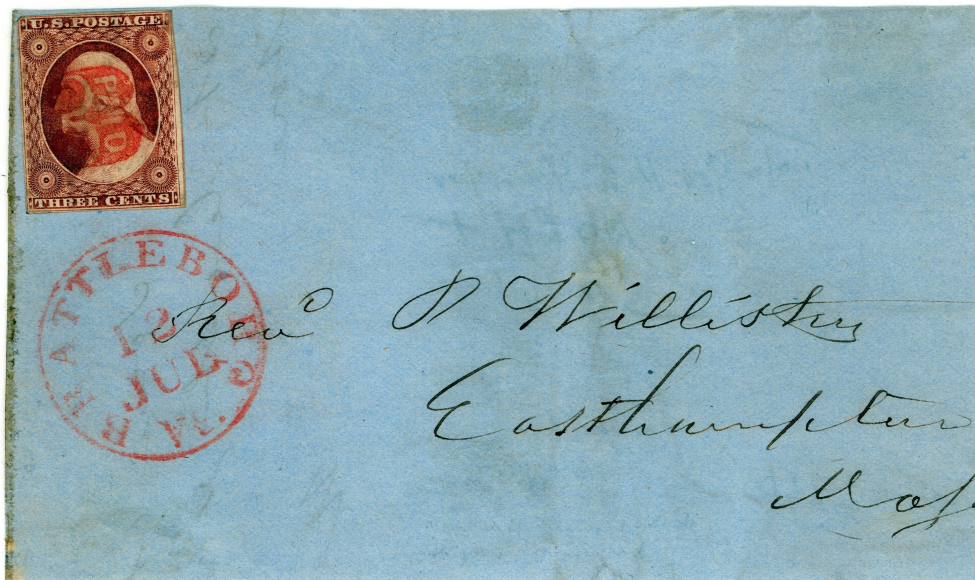 U.S. POSTAGE
PAID
THREE CENTS
BRATTLEBORO
13
JUL
Rev^d P Williston
Easthampton
Mass